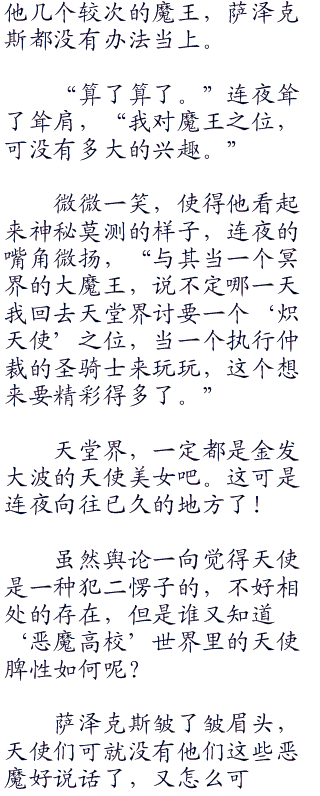 他几个较次的魔王，萨泽克
斯都没有办法当上。
“算了算了。”连夜耸
了耸肩，“我对魔王之位，
可没有多大的兴趣。”
微微一笑，使得他看起
来神秘莫测的样子，连夜的
嘴角微扬，“与其当一个冥
界的大魔王，说不定哪一天
我回去天堂界讨要一个‘炽
天使’之位，当一个执行仲
裁的圣骑士来玩玩，这个想
来要精彩得多了。”
天堂界，一定都是金发
大波的天使美女吧。这可是
连夜向往已久的地方了！
虽然舆论一向觉得天使
是一种犯二愣子的，不好相
处的存在，但是谁又知道
‘恶魔高校’世界里的天使
脾性如何呢？
萨泽克斯皱了皱眉头，
天使们可就没有他们这些恶
魔好说话了，又怎么可